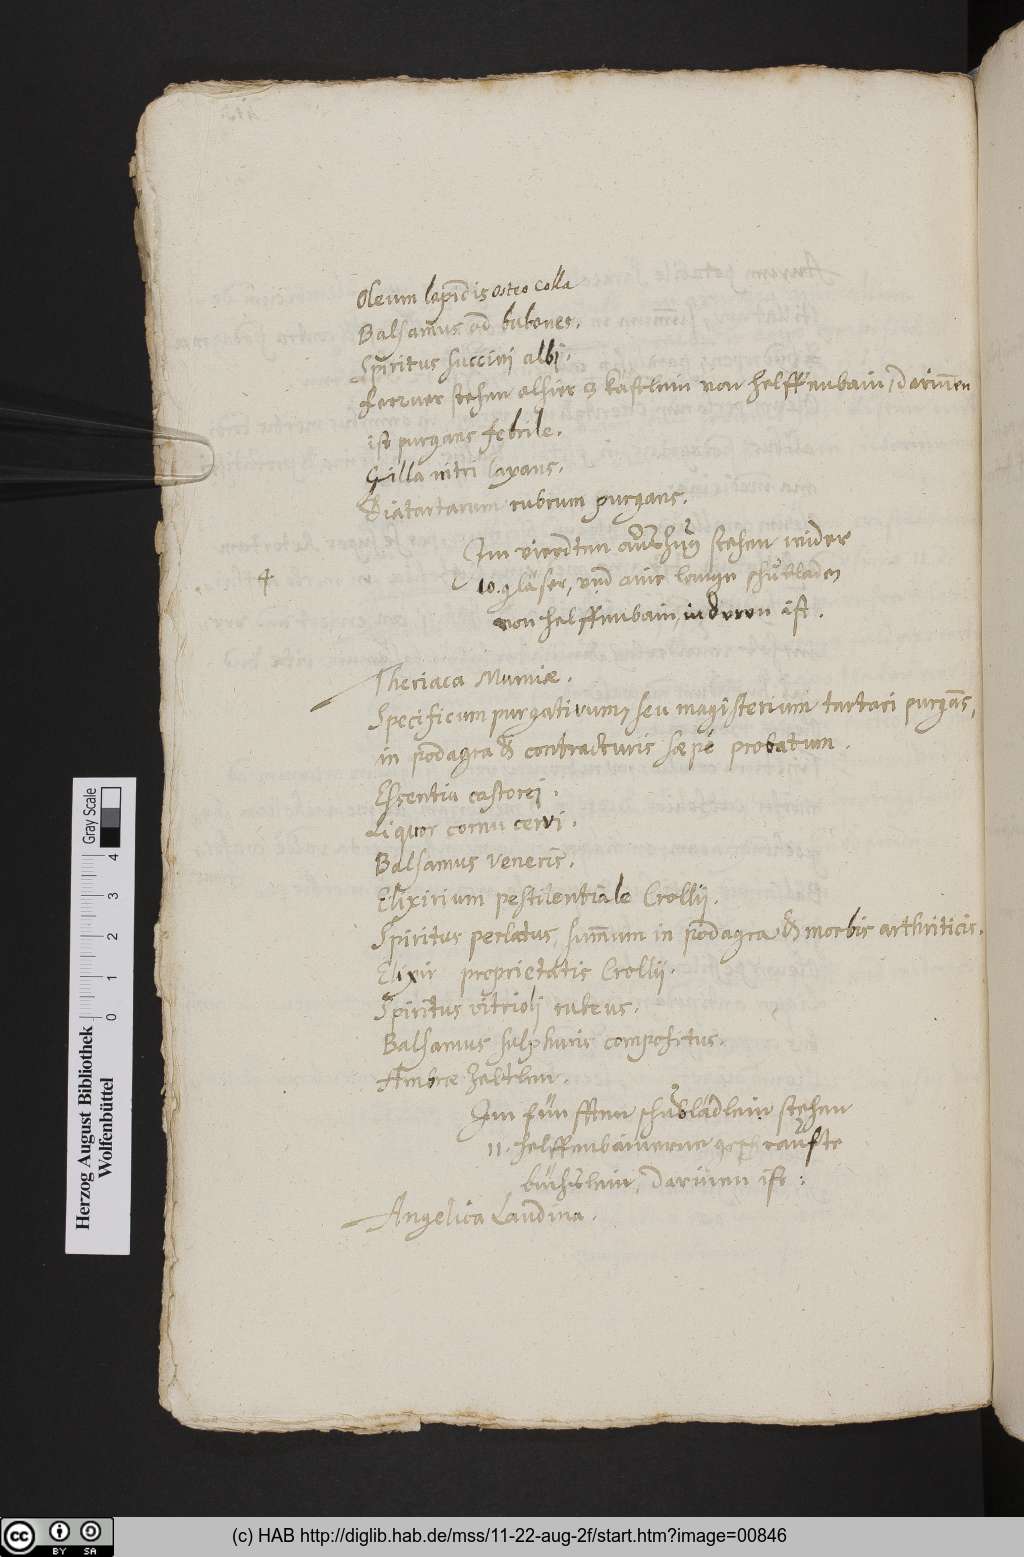 Oleum lapidis osteo colla
Balsamus ad bubones.
Spiritus succini albi.
Ferner stehen alhier 3 kästlein von helffenbain, darinnen
ist purgans febrile.
Gilla nitri laxans.
Diatartarum rubrum purgans.
Im vierdten stehen wider
4
10. gläser, und aine lange schubladen
von helffenbain, in deren ist.
Theriaca Mumiæ.
Specificum purgativum, seu magisterium tartari purgans,
in podagra & contracturis sæpè probatum.
Essentia castorei.
Liquor cornu cervi.
Balsamus veneris.
Elixirium pestilentiale Crollii.
Spiritus perlatus, summum in podagra & morbis arthriticis.
Elixir proprietatis Crollii.
Spiritus vitrioli rubeus.
Balsamus sulphuris compositus.
Ambræ zeltlin.
Im fünfften schublädlein stehen
11. helffenbainerne
büchslein, darinnen ist:
Angelica Laudina.
Herzog August Bibliothek
Wolfenbüttel
0 1 2 3 4
Gray Scale
cc BY SA
(c) HAB http://diglib.hab.de/mss/11-22-aug-2f/start.htm?image=00846